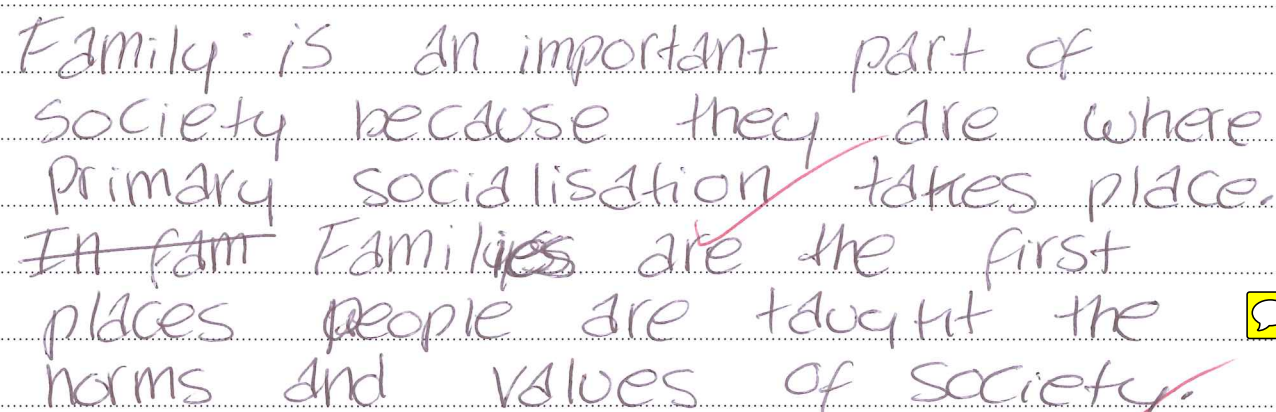 Family is an important part of
society because they are where
primary socialisation takes place.
In fam Families are the first
places people are taught the
norms and values of society.